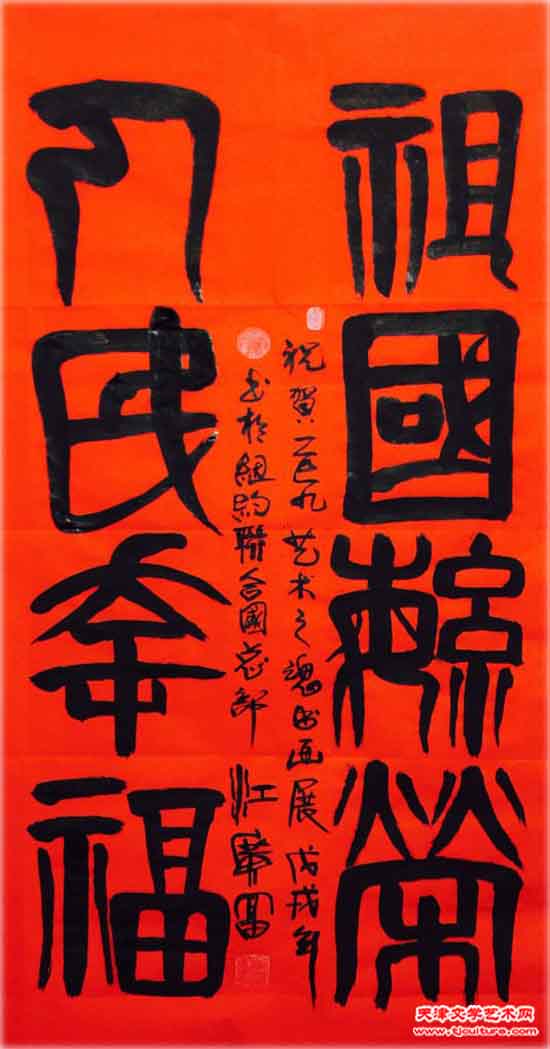 祖國繁榮
祝賀二〇一九艺术之魂书画展 戊戌年
书於紐約聯合國总部 江
人民幸福
天津文学艺术网
www.tjculture.com